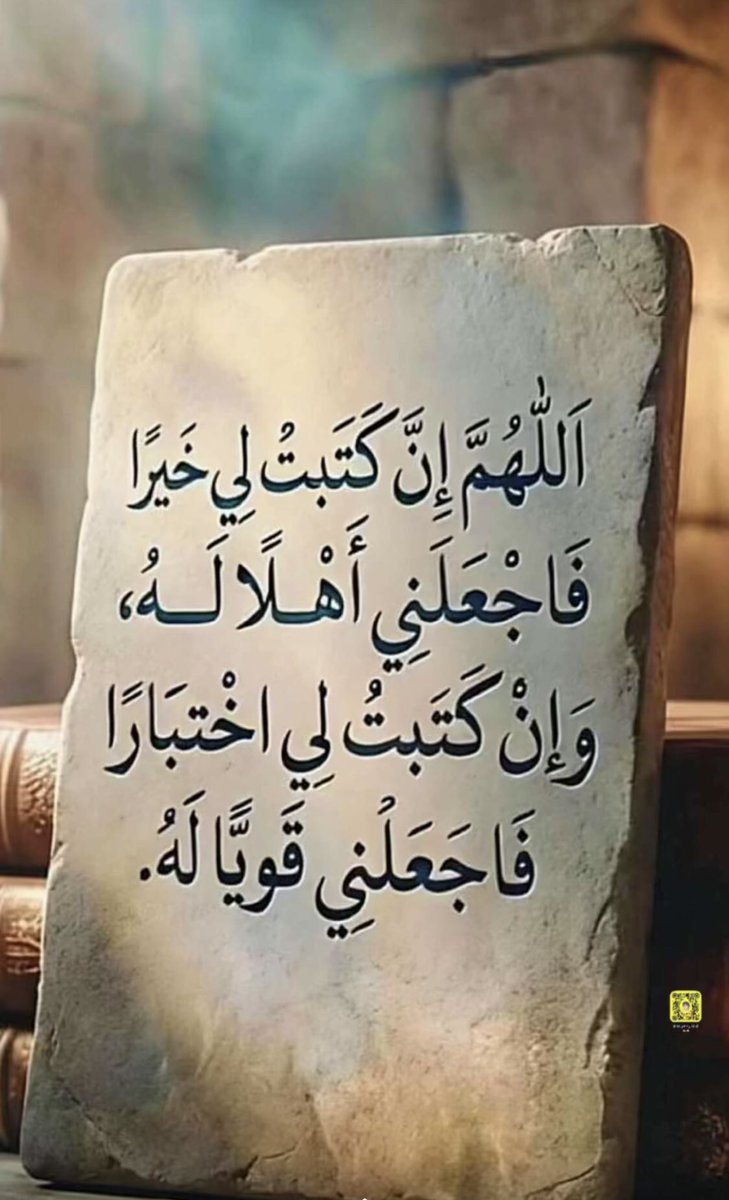 اَللّٰهُمَّ إِنَّ كَتَبتُ لِي خَيرًا
فَاجْعَلَنِي أَهْلًا لَـهُ،
وَإنْ كَتَبتُ لِي اخْتبَارًا
فَاجَعَلْنِي قَويًّا لَهُ.